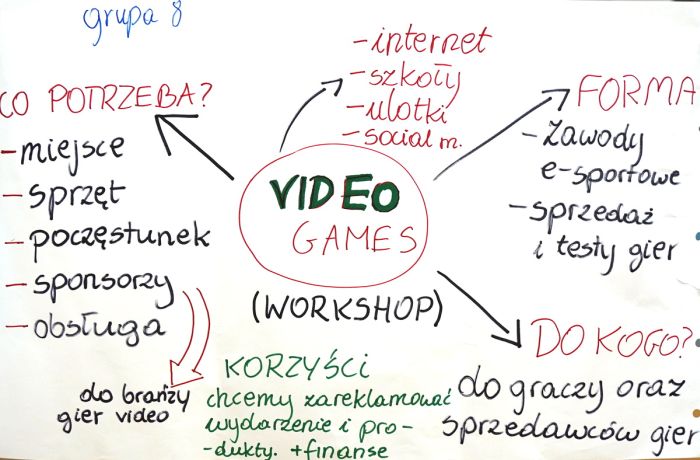 grupa 8
- internet
- szkoły
- ulotki
- social m.
CO POTRZEBA?
- miejsce
- sprzęt
- poczęstunek
- sponsorzy
- obsługa
do branży
gier video
VIDEO
GAMES
(WORKSHOP)
FORMA
- Zawody
e-sportowe
- sprzedaż
i testy gier
KORZYŚCI
chcemy zareklamować
wydarzenie i pro-
-dukty. + finanse
DO KOGO?
do graczy oraz
sprzedawców gier